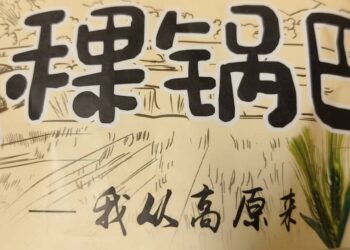 稞锅巴
—我从高原来